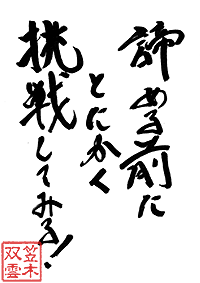 諦める前に
とにかく
挑戦してみる！
笠木
双雲